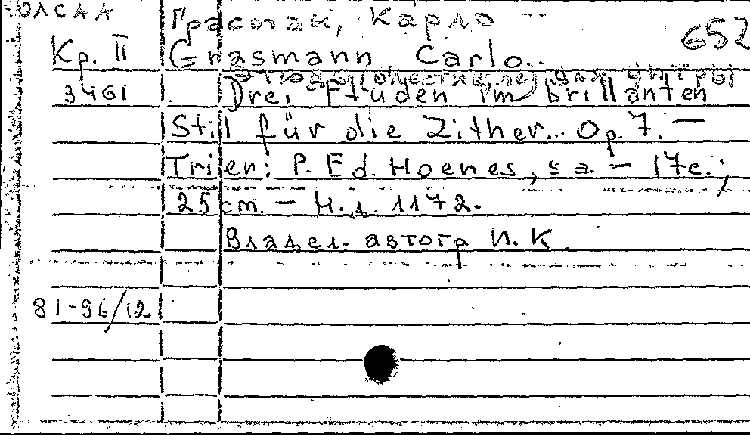 ОЛСАА
Грасман, Карло
652
Кр. II
Grasmann Carlo.
3461
Drei Etüden im brillanten
Stil für die Zither... Op. 7. —
Trier: P. Ed. Hoenes, s a — 17 с.;
25 cm. — Н.д. 1172.
Владел. автогр И. К.
81-96/12